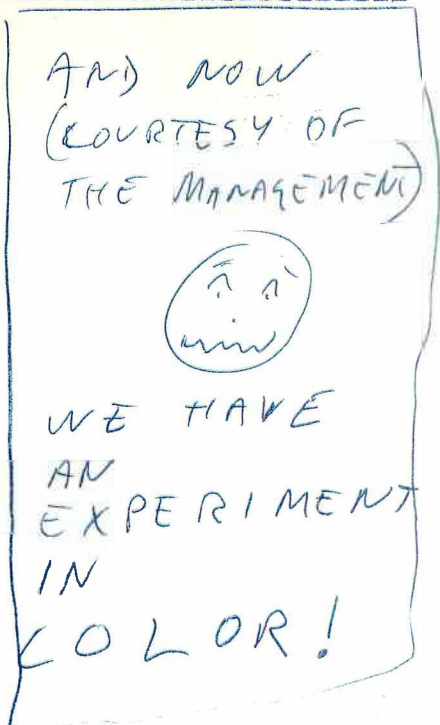 AND NOW
(COURTESY OF
THE MANAGEMENT)
WE HAVE
AN
EXPERIMENT
IN
COLOR!